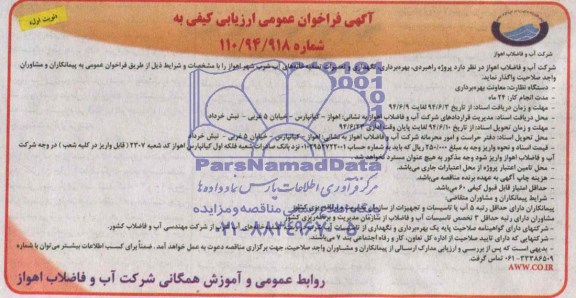 نوبت اول
آگهی فراخوان عمومی ارزیابی کیفی به
شماره ۱۱۰/۹۴/۹۱۸
شرکت آب و فاضلاب اهواز
شرکت آب و فاضلاب اهواز در نظر دارد پروژه راهبردی، بهره‌برداری، نگهداری و تعمیرات تصفیه‌خانه‌های آب شرب شهر اهواز را با مشخصات و شرایط ذیل از طریق فراخوان عمومی به پیمانکاران و مشاوران
واجد صلاحیت واگذار نماید.
- دستگاه نظارت: معاونت بهره‌برداری
- مدت انجام کار: ۲۴ ماه
- مهلت و زمان دریافت اسناد: از تاریخ ۹۴/۶/۲ لغایت ۹۴/۶/۹
- محل دریافت اسناد: مدیریت قراردادهای شرکت آب و فاضلاب اهواز به نشانی: اهواز - کیانپارس - خیابان ۵ غربی - نبش خرداد
- مهلت و زمان تحویل اسناد: از تاریخ ۹۴/۶/۱۰ لغایت پایان وقت اداری ۹۴/۶/۲۳
- محل تحویل اسناد: دفتر حراست و امور محرمانه شرکت آب و فاضلاب اهواز به نشانی: اهواز - کیانپارس - خیابان ۵ غربی - نبش خرداد
- قیمت اسناد و نحوه واریز وجه به مبلغ ۲۵۰/۰۰۰ ریال که باید به شماره حساب نزد بانک صادرات شعبه فلکه اول کیانپارس اهواز کد شعبه ۲۳۰۷ (قابل واریز در کلیه شعب) در وجه شرکت
آب و فاضلاب اهواز واریز شود وجه مذکور به هیچ عنوان مسترد نخواهد شد.
- محل تامین اعتبار پروژه از محل اعتبارات جاری می‌باشد.
- هزینه چاپ آگهی به عهده برنده مناقصه می‌باشد.
- حداقل امتیاز قابل قبول کیفی ۶۰ می‌باشد.
- شرایط پیمانکاران و مشاوران متقاضی
پیمانکاران دارای حداقل رتبه ۵ آب یا تاسیسات و تجهیزات از سازمان مدیریت و برنامه‌ریزی کشور
مشاوران دارای رتبه حداقل ۳ تخصص تاسیسات آب و فاضلاب از سازمان مدیریت و برنامه‌ریزی کشور
- شرکتهای دارای گواهینامه صلاحیت پایه یک بهره‌برداری و نگهداری از تاسیسات آب از شرکت مهندسی آب و فاضلاب کشور.
- شرکتهایی که دارای تایید صلاحیت از اداره کل تعاون، کار و رفاه اجتماعی بند ۷ می‌باشند.
- بدیهی است که پس از بررسی و ارزیابی مدارک ارسالی از پیمانکاران و مشاوران واجد صلاحیت، جهت برگزاری مناقصه دعوت به عمل خواهد آمد. ضمناً برای کسب اطلاعات بیشتر می‌توان با شماره
۰۶۱-۳۳۳۸۶۵۰۹ تماس گرفت.
AWW.CO.IR
روابط عمومی و آموزش همگانی شرکت آب و فاضلاب اهواز
ParsNamadData
مرکز فرآوری اطلاعات پارس نماد داده‌ها
پایگاه اطلاع رسانی مناقصه و مزایده
۰۲۱-۸۸۳۴۹۶۷۰-۵